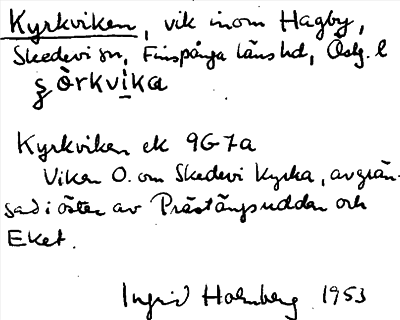 Kyrkviken, vik inom Hagby,
Skedevi sn, Finspånga läns hd, Östg. l
şòrkvi̠ka
Kyrkviken ek 9G7a
Viken O. om Skedevi kyrka, avgrän-
sad i öster av Prästängsuddan och
Eket.
Ingrid Holmberg 1953